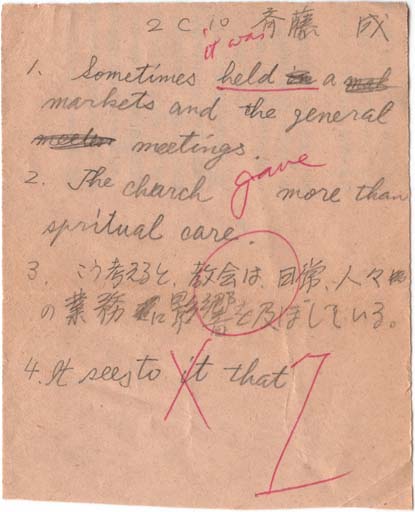 2 C 10 斉藤 成
it was
1. Sometimes held in a
markets and the general
meetings.
2. The church gave more than
spritual care.
3. こう考えると、教会は、日常、人々
の業務に影響を及ぼしている。
4. It sees to it that